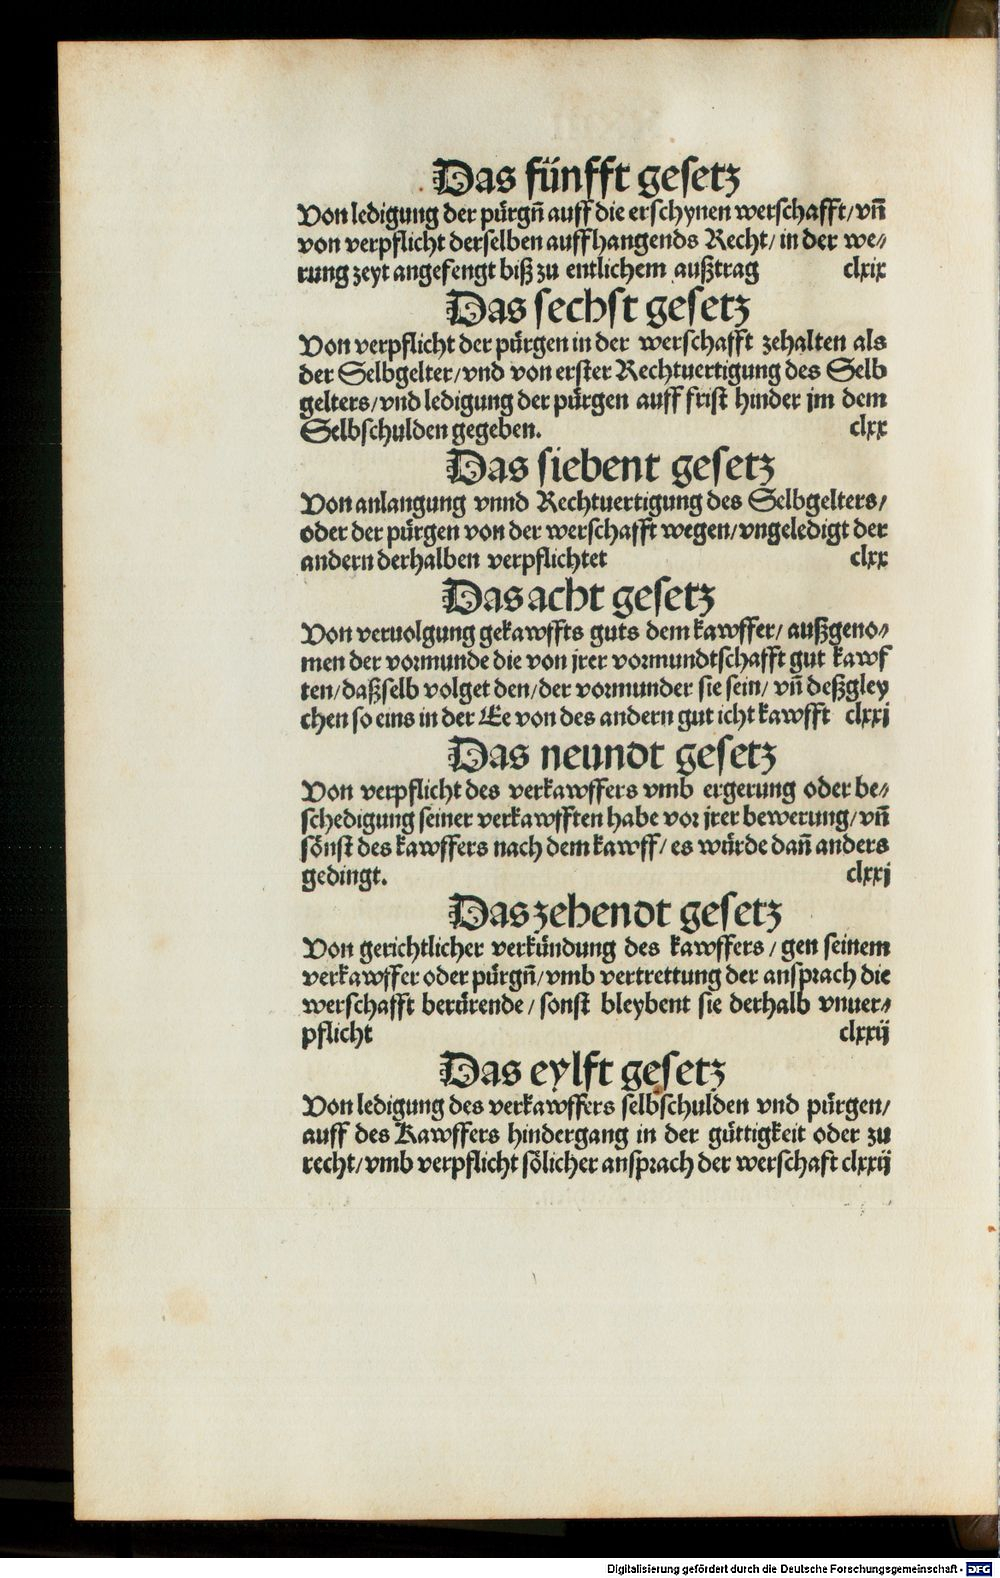 Das fünfft gesetz
Von ledigung der pürgñ auff die erschynen werschafft/ vñ
von verpflicht derselben auffhangends Recht/ in der we⸗
rung zeyt angefengt biß zu entlichem außtrag clxix
Das sechst gesetz
Von verpflicht der pürgen in der werschafft zehalten als
der Selbgelter/ vnd von erster Rechtuertigung des Selb
gelters/ vnd ledigung der pürgen auff frist hinder jm dem
Selbschulden gegeben. clxx
Das siebent gesetz
Von anlangung vnnd Rechtuertigung des Selbgelters/
oder der pürgen von der werschafft wegen/ vngeledigt der
andern derhalben verpflichtet clxx
Das acht gesetz
Von veruolgung gekawffts guts dem kawffer/ außgeno⸗
men der vormunde die von jrer vormundtschafft gut kawf
ten/ daßselb volget den/ der vormunder sie sein/ vñ deßgley
chen so eins in der Ee von des andern gut icht kawfft clxxj
Das neundt gesetz
Von verpflicht des verkawffers vmb ergerung oder be⸗
schedigung seiner verkawfften habe vor jrer bewerung/ vñ
sönst des kawffers nach dem kawff/ es würde dañ anders
gedingt. clxxj
Das zehendt gesetz
Von gerichtlicher verkündung des kawffers/ gen seinem
verkawffer oder pürgñ/ vmb vertrettung der ansprach die
werschafft berürende/ sonst bleybent sie derhalb vnuer⸗
pflicht clxxij
Das eylft gesetz
Von ledigung des verkawffers selbschulden vnd pürgen/
auff des Kawffers hindergang in der güttigkeit oder zu
recht/ vmb verpflicht sölicher ansprach der werschaft clxxij
Digitalisierung gefördert durch die Deutsche Forschungsgemeinschaft - DFG